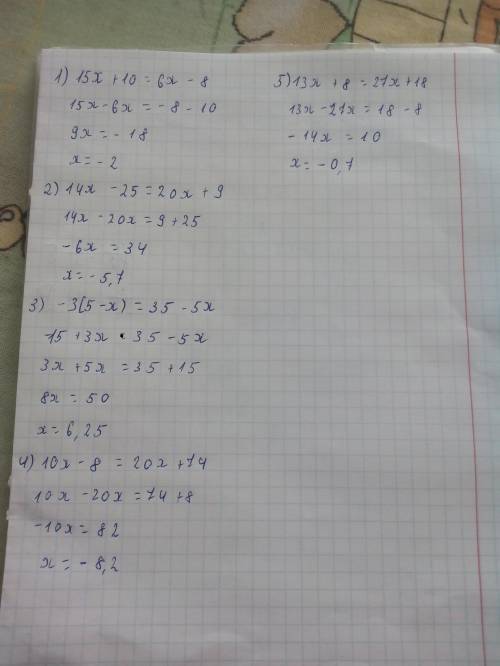 1) 15x + 10 = 6x - 8
15x - 6x = - 8 - 10
9x = - 18
x = - 2
2) 14x - 25 = 20x + 9
14x - 20x = 9 + 25
-6x = 34
x = - 5,7
3) -3(5 - x) = 35 - 5x
-15 + 3x = 35 - 5x
3x + 5x = 35 + 15
8x = 50
x = 6,25
4) 10x - 8 = 20x + 74
10x - 20x = 74 + 8
-10x = 82
x = - 8,2
5) 13x + 8 = 27x + 18
13x - 27x = 18 - 8
- 14x = 10
x = - 0,7